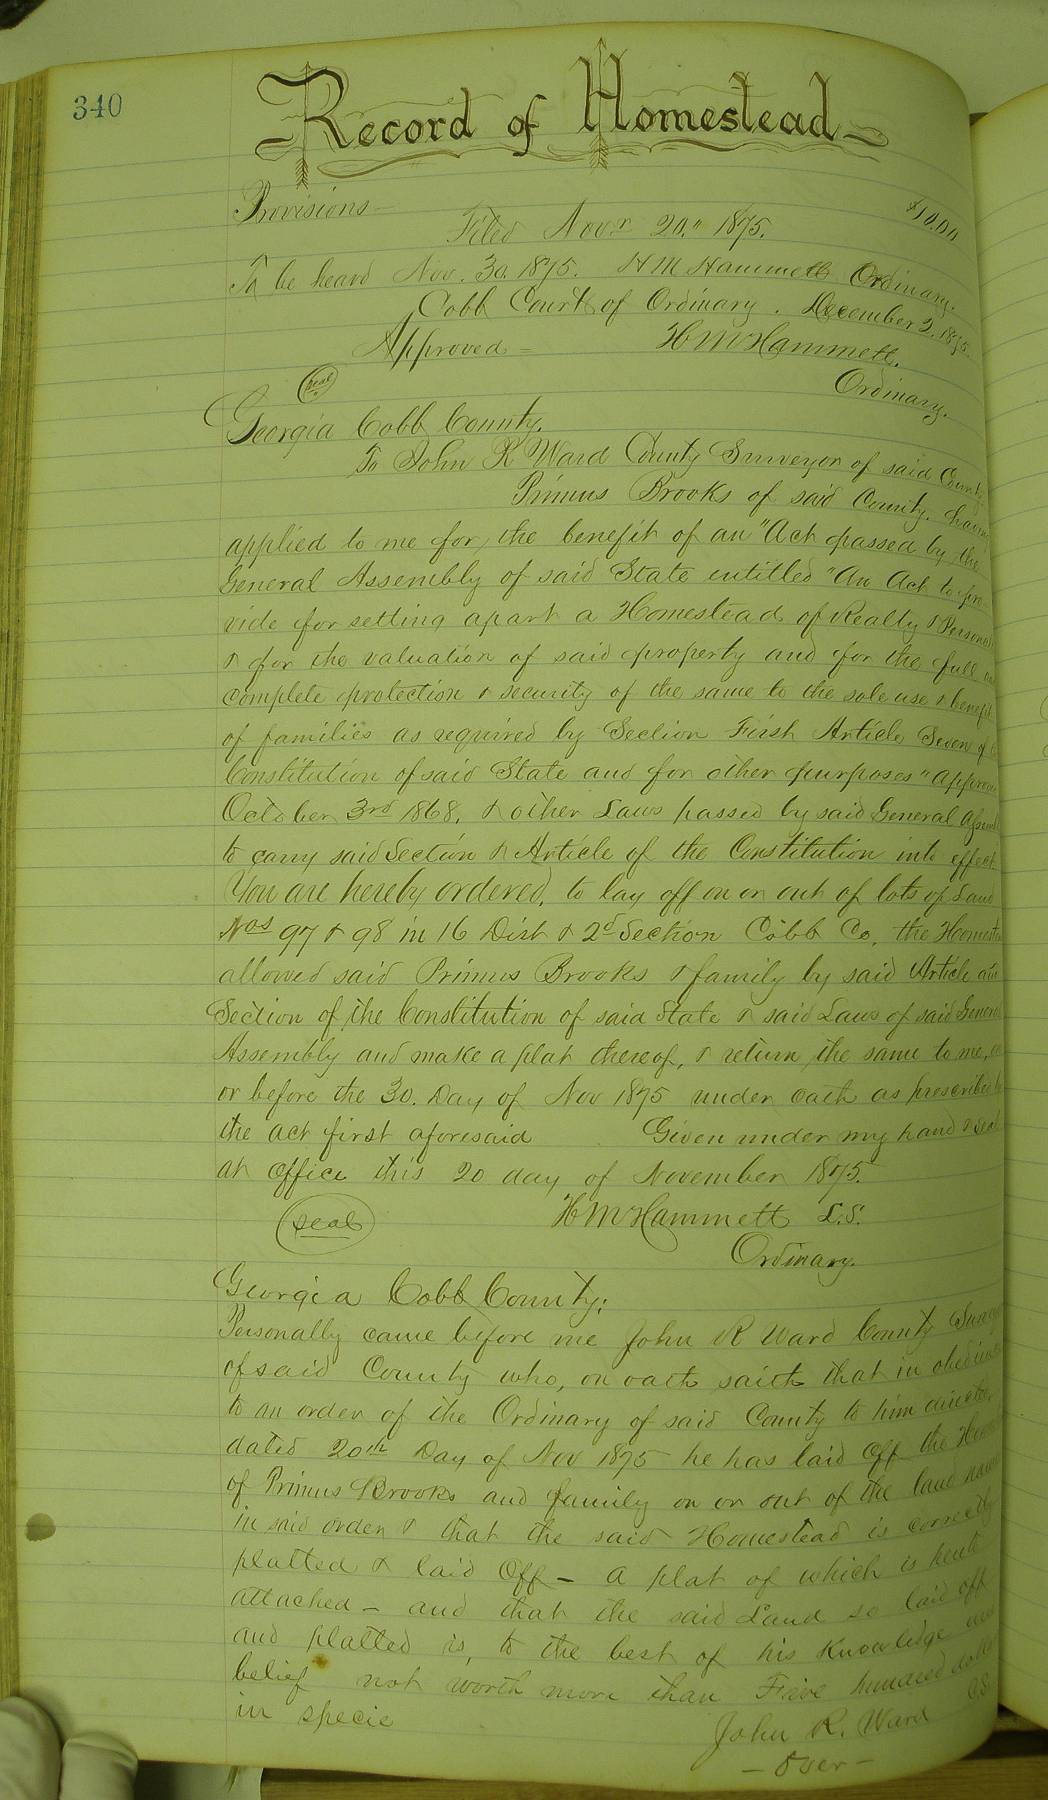 340
Record of Homestead
Provisions — $10.00
Filed Novr 20." 1875.
To be heard Nov. 30. 1875. H M Hammett Ordinary.
Cobb Court of Ordinary. December 2. 1875.
Approved — H M Hammett.
seal Ordinary.
Georgia Cobb County.
To John R Ward County Surveyor of said County.
Primus Brooks of said County. having
applied to me for the benefit of an "Act passed by the
General Assembly of said State entitled "An Act to pro-
vide for setting apart a Homestead of Realty & Personal
& for the valuation of said property and for the full
complete protection & security of the same to the sole use & benefit
of families as required by Section First Article Seven of
Constitution of said State and for other purposes" approve
October 3rd 1868, & other Laws passed by said General
to carry said Section & Article of the Constitution into effect
You are hereby ordered, to lay off on or out of lots of Land
Nos 97 & 98 in 16 Dist & 2d Section Cobb Co, the Homeste
allowed said Primus Brooks & family by said Article
Section of the Constitution of said State & said Laws of said General
Assembly and make a plat thereof, & return the same to me,
or before the 30. Day of Nov 1875 under oath as prescribed
the act first aforesaid Given under my hand & seal
at office this 20 day of November 1875.
seal H M Hammett L.S.
Ordinary.
Georgia Cobb County;
Personally came before me John R Ward County
of said County who, on oath saith that in
to an order of the Ordinary of said County to him
dated 20th Day of Nov 1875 he has laid off the
of Primus Brooks and family on or out of the land
in said order & that the said Homestead is correctly
platted & laid off — a plat of which is
attached — and that the said Land so laid off
and platted is, to the best of his knowledge
belief not worth more than Five hundred
in specie John R. Ward C.S.
— over —